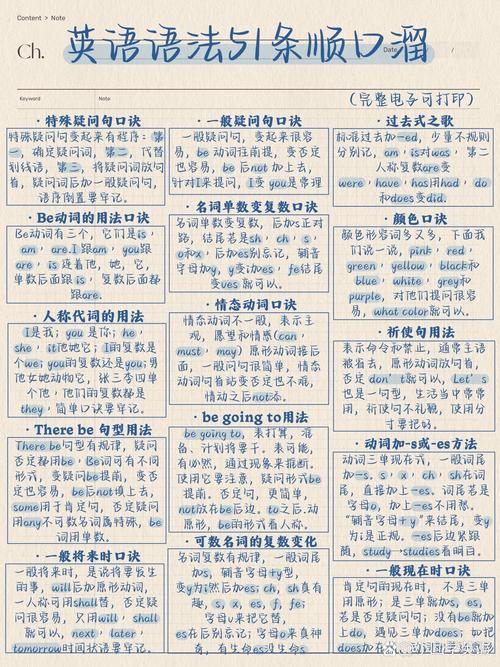 Content > Note
Ch.
英语语法51条顺口溜
Date
/
Keyword
Note
(完整电子可打印)
·特殊疑问句口诀
特殊疑问句变起来有程序：第
一，确定疑问词，第二，代替
划线语，第三，将疑问词放句
首，疑问词后加一般疑问句，
语序倒置要牢记。
·Be动词的用法口诀
Be动词有三个，它们是is，
am，are.I跟am，you跟
are，is连着他，她，它，
单数后面跟is，复数后面都
跟are.
·人称代词的用法
I是我；you是你；he，
she，it他她它；I的复数是
个we；you的复数还是you；男
他女她动物它，张三李四单
个他，他们的复数都是
they，简单口诀要牢记。
·There be 句型用法
There be句型有规律，疑问
否定都用be，Be词可有不同
形式，变疑问be提前，变否
定也容易，be后not填上去，
some用于肯定句，否定疑问
用any不可数名词属特殊，be
词用单数。
·一般将来时口诀
一般将来时，是说将要发生
的事，will后加原形动词，
一人称可用shall替，否定疑
问很容易，只用will，shall
就可以，next，later，
tomorrow时间状语要牢记。
·一般疑问句口诀
一般疑问句，变起来很容
易，be 动词往前提，变否定
也不难，be 后not 加上去，
针对I来提问，I变you是常理
·名词单数变复数口诀
名词单数变复数，后加s正对
路，结尾若是sh，ch，s，
o和x，后加es别忘记，辅音
字母加y，y变i加es，fe结尾
变ves 就可以。
·情态动词口诀
情态动词不一般，表示主
观，愿望和情感(can，
must，may）原形动词接后
面，一般问句很简单，情态
动词句首站变否定也不难，
情动之后not添。
·be going to用法
be going to，表打算，准
备、计划将要干。表可能，
有必然，通过现象来推断。
使用它要注意，疑问形式be
提前。否定句，更简单，
not放在be后边。to之后.动
原形，be的形式看人称。
·可数名词的复数变化
名词复数有规律，一般词尾
加s，辅音字母+y型，
变y为i然后加es；ch，sh真有
趣，s，x，es，f，fe；
字母v来把它替，
es在后别忘记；字母o来真神
奇，有生命es没生命s
·过去式之歌
标准过去加-ed，少量不规则
分别记，am，is对was，第二
人称复数are变
were，have，has用had，do
和does变did.
·颜色口诀
颜色形容词多又多，下面我
们说一说，pink，red，
green，yellow，black和
blue，white，grey和
purple，对他们提问很容
易，what color就可以。
·祈使句用法
表示命令和禁止，通常主语
被省去，原形动词放句首，
否定don't就可以，Let's
也是一句型，生活当中常常
用，祈使句不礼貌，使用分
寸要把好。
·动词加-s或-es方法
动词三单现在式，一般词尾
加-s，s，x，ch，sh在词
尾，直接加上-es。词尾若是
字母o，加上-es不用愁。
“辅音字母+y”来结尾，变y
为i是正规。-es后边紧跟
随，study→studies看明白。
·一般现在时口诀
肯定句的现在时，不是三单
用原形；是三单就加s，es，
若是否定疑问句；没有be就加
上do，遇见三单加does；如把